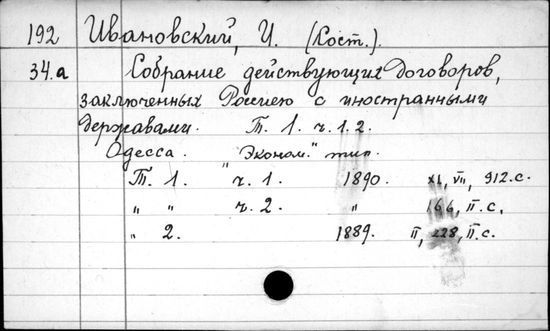 192 Ивановский, И. (Сост.).
34.а Собрание действующих договоров,
заключенных Россиею с иностранными
державами. Т. 1. ч. 1. 2.
Одесса. "Эконом." тип.
Т. 1. ч. 1. 1890. XI, VII, 912. с.
" " ч. 2. " 166, II. с.
" 2. 1889. II, 228, II. с.